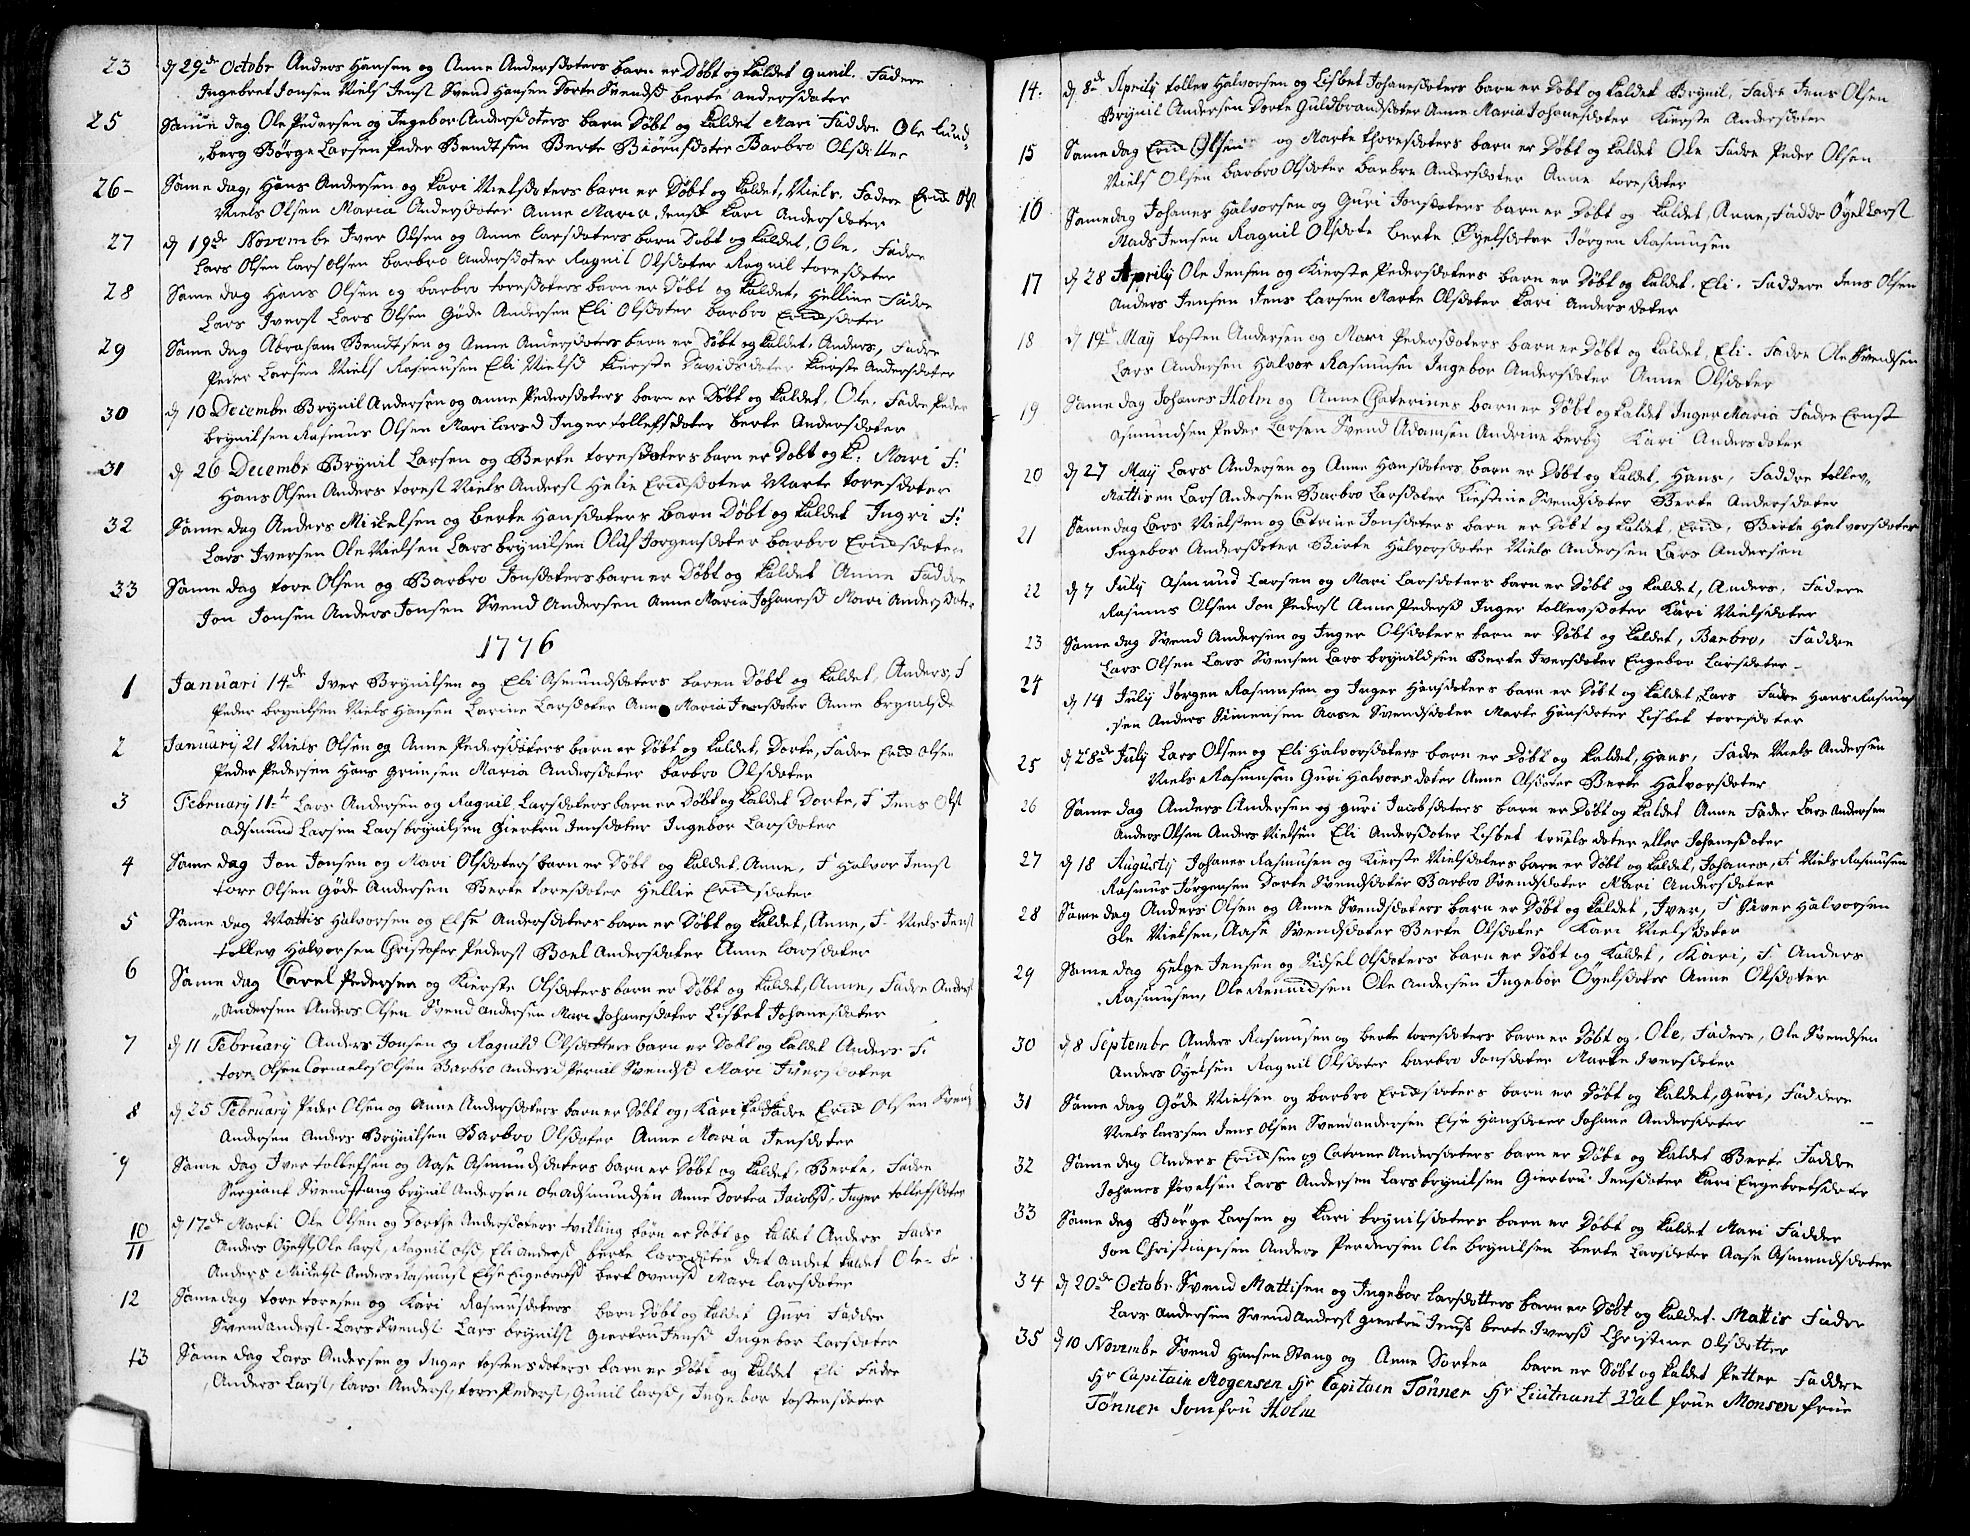 23 d 29de Octobr Anders Hansen og Anne Andersdoters barn er Døbt og kaldet Gunil. Fadere
Ingebret Jonsen Niels Jenst Svend Hansen Dorte Svendsd Berte Andersdater
25 Same dag Ole Pedersen og Ingebor Andersdoters barn Døbt og kaldet Mari Faddre Ole Lund-
berg Børge Larsen Peder Bendtsen Berte Biørnsdoter Barbro Olsdotter
26 Same dag, Hans Andersen og Kari Nielsdoters barn er Døbt og kaldet, Niels. Fadere Erich Olst
Niels Olsen Maria Andersdoter Anne Maria Jensd Kari Andersdoter
27 d 19de Novembr Iver Olsen og Anne Larsdoters barn Døbt og kaldet, Ole. Fadre
Lars Olsen Lars Olsen Barbro Andersdoter Ragnil Olsdoter Ragnil Toresdoter
28 Same dag Hans Olsen og Barbro Toresdoters barn er Døbt og kaldet, Helline Fadre
Lars Iverst Lars Olsen Gøde Andersen Eli Olsdoter Barbro Erichsdoter
29 Same dag Abraham Bendtsen og Anne Andersdoters barn er Døbt og kaldet, Anders, Fadre
Peder Larsen Niels Rasmusen Eli Nielsd Kierste Davidsdoter Kierste Andersdoter
30 d 10 Decembr Brynil Andersen og Anne Pedersdoters barn er Døbt og kaldet, Ole. Fadre Peder
Brynilsen Rasmus Olsen Mari Larsd Inger Tollefsdoter Berte Andersdoter
31 d 26 Decembr Brynil Larsen og Berte Toresdoters barn er Døbt og k: Mari F:
Hans Olsen Anders Torest Niels Anderst Helie Erichsdoter Marte Toresdoter
32 Same dag Anders Mickelsen og Berte Hansdoters barn Døbt og kaldet Ingri F:
Lars Iversen Ole Nielsen Lars Brynilsen Oluf Jorgensdoter Barbro Erichsdoter
33 Same dag Tore Olsen og Barbro Jonsdoters barn er Døbt og kaldet Anne Faddre
Jon Jonsen Anders Jonsen Svend Andersen Anne Maria Johanesd Mari Andersdoter
1776
1 Januari 14de Iver Brynilsen og Eli Asmundsdoters baren Døbt og kaldet, Anders, F
Peder Brynilsen Niels Hansen Larine Larsdoter Anne Maria Jensdoter Anne Brynilsd
2 Januarij 21 Niels Olsen og Anne Pedersdoters barn er Døbt og kaldet, Dorte, Fadre Erich Olsen
Peder Pedersen Hans Grimsen Maria Andersdoter Barbro Olsdoter
3 February 11te Lars Andersen og Ragnil Larsdoters barn er Døbt og kaldet Dorte, F Jens Olst
Adsmund Larsen Lars Brynilsen Giertru Jensdoter Ingebor Larsdoter
4 Same dag Jon Jonsen og Mari Olsdoters barn er Døbt og kaldet. Anne, F Halvor Jenst
Tore Olsen Gøde Andersen Berte Toresdoter Hellie Erichsdoter
5 Same dag Mattis Halvorsen og Else Andersdoters barn er Døbt og kaldet, Anne, F Niels Jenst
Tollev Halvorsen Christofer Pederst Boel Andersdoter Anne Larsdoter
6 Same dag Carel Pedersen og Kierste Olsdoters barn er Døbt og kaldet, Anne, Fadre Anderst
Andersen Anders Olsen Svend Andersen Mari Johanesdoter Lisbet Johanesdoter
7 d 11 February Anders Jonsen og Ragnild Olsdotters barn er Døbt og kaldet Anders F.
Tore Olsen Cornelies Olsen Barbro Andersd Pernil Svendsd Mari Iversdoter
8 d 25 February Peder Olsen og Anne Andersdoters barn er Døbt og, Kari kaldt Fadre Erich Olsen Svend
Andersen Anders Brynilsen Barbro Olsdoter Anne Maria Jensdoter
9 Same dag Iver Tollefsen og Aase Asmundsdoters barn er Døbt og kaldet, Berte, Fadre
Sergiant Svend Stang Brynil Andersen Ole Adsmundsen Anne Dortea Jacobsd. Inger Tollefsdoter
10/11 d 17de Marti Ole Olsen og Dorthe Andersdoters tvilling børn er Døbt og kaldet Anders Fadre
Anders Øyelst, Ole Larst, Ragnil Olsd, Eli Andersd Berte Larsdoter det andet kaldet Ole - Fr
Anders Mickelst Anders Rasmust Else Engebretsd Bert Ovensd Mari Larsdoter
12 Same dag Tore Toresen og Kari Rasmusdoters barn Døbt og kaldet Guri Faddre
Svend Anderst. Lars Svendst. Lars Brynilst Giertru Jensd Ingebor Larsdoter
13 Same dag Lars Andersen og Inger Tostensdoters barn er Døbt og kaldet Eli Fadre
Anders Larst, Lars Anderst, Tore Pederst, Gunil Larsd, Ingebor Tostensdoter
14. d. 8de Aprily Tollev Halvorsen og Lisbet Johanesdoters barn er Døbt og kaldet Brynil, Fadre Jens Olsen
Brynil Andersen Dorte Guldbrandsdoter Anne Maria Johanesdoter Kierste Andersdoter
15 Same dag Erich Olsen og Marte Thoresdoters barn er Døbt og kaldet Ole Fadre Peder Olsen
Niels Olsen Barbro Olsdoter Barbro Andersdoter Anne Toresdoter
16 Same dag Johanes Halvorsen og Guri Jonsdoters barn er Døbt og kaldet, Anne, Faddr Øyel Larst
Mads Jensen Ragnil Olsdote Berte Øyelsdoter Jørgen Rasmusen
17 d 28 Aprily Ole Jensen og Kierste Pedersdoters barn er Døbt og kaldet. Eli. Faddere Jens Olsen
Anders Jensen Jens Larsen Marte Olsdoter Kari Andersdoter
18 d 19de May Tosten Andersen og Mari Pedersdoters barn er Døbt og kaldet, Eli. Fadre Ole Svendsen
Lars Andersen Halvor Rasmusen Ingebor Andersdoter Anne Olsdoter
19 Same dag Johanes Holm og Anne Chaterines barn er Døbt og kaldet Inger Maria Fadre Ernst
Asmundsen Peder Larsen Svend Adamsen Andrine Berby Kari Andersdoter
20 d 27 May Lars Andersen og Anne Hansdoters barn er Døbt og kaldet, Hans, Faddre Tollev
Mattisen Lars Andersen Barbro Larsdoter Kiestine Svendsdoter Berte Andersdoter
21 Same dag Lars Nielsen og Catrine Jonsdoters barn er Døbt og kaldet, Erich, Birte Halvorsdoter
Ingebor Andersdoter Birte Halvorsdoter Niels Andersen Lars Andersen
22 d 7 July Asmund Larsen og Mari Larsdoters barn er Døbt og kaldet, Anders, Fadere
Rasmus Olsen Jon Pederst Anne Pedersd Inger Tollevsdoter Kari Nielsdoter
23 Same dag Svend Andersen og Inger Olsdoters barn er Døbt og kaldet, Barbro, Faddre
Lars Olsen Lars Svensen Lars Brynildsen Berte Iversdoter Engebor Larsdoter
24 d 14 July Jørgen Rasmusen og Inger Hansdoters barn er Døbt og kaldet, Lars Fadre Hans Rasmus
sen Anders Simensen Aase Svendsdoter Marte Hansdoter Lisbet Toresdoter
25 d 28de July Lars Olsen og Eli Halvorsdoters barn er Døbt og kaldet, Hans, Fadre Niels Andersen
Niels Rasmusen Guri Halvorsdoter Anne Olsdoter Berte Halvorsdoter
26 Same dag Anders Andersen og Guri Jacobsdoters barn er Døbt og kaldet Anne Fader Lars Andersen
Anders Olsen Anders Nielsen Eli Andersdoter Lisbet Truelsdoter eller Johanesdoter
27 d 18 Augusty Johanes Rasmusen og Kierste Nielsdoters barn er Døbt og kaldet, Johanes, F Niels Rasmusen
Rasmus Jørgensen Dorte Svendsdoter Barbro Svendsdoter Mari Andersdoter
28 Same dag Anders Olsen og Anne Svendsdoters barn er Døbt og kaldet, Iver, F Siver Halvorsen
Ole Nielsen, Aase Svendsdoter Berte Olsdoter Kari Nielsdoter
29 Same dag Helge Jensen og Sidsel Olsdoters barn er Døbt og kaldet, Kari, F. Anders
Rasmusen, Ole Remmidsen Ole Andersen Ingebor Øyelsdoter Anne Olsdoter
30 d 8 Septembr Anders Rasmusen og Berte Toresdoters barn er Døbt og. Ole, Fadere, Ole Svendsen
Anders Øyelsen Ragnil Olsdoter Barbro Jonsdoter Marte Iversdoter
31 Same dag Gøde Nielsen og Barbro Erichsdoters barn er Døbt og kaldet, Guri, Faddere
Niels Larssen Jens Olsen Svend Andersen Else Hansdoter Johane Andersdoter
32 Same dag Anders Erichsen og Catrine Andersdoters barn er Døbt og kaldet Berte Faddre
Johanes Povelsen Lars Andersen Lars Brynilsen Giertru Jensdoter Kari Engebretsdoter
33 Same dag Børge Larsen og Kari Brynilsdoters barn er Døbt og kaldet Mari Fadder
Jon Christiansen Anders Perdersen Ole Brynilsen Berte Larsdoter Aase Asmundsdoter
34 d 20de Octobr Svend Mattisen og Ingebor Larsdotters barn er Døbt og kaldet. Mattis Fadre
Lars Andersen Svend Anderst Giertru Jensd Berte Iversd Christine Olsdotter
35 d 10 Novembr Svend Hansen Stang og Anne Dortea barn er Døbt og kaldet Petter Faddre
Hr Capitain Mogensen Hr Capitain Tønner Hr Liutnant Dal frue Monsen frue
Tønner Jomfru Holm